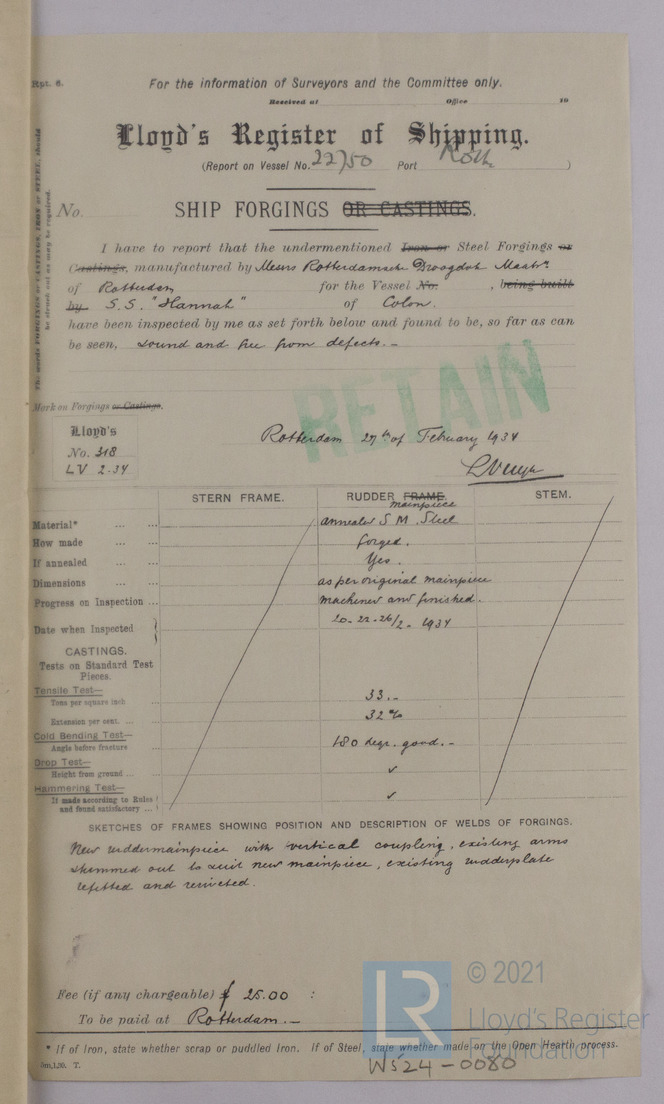 Rpt. 6.
For the information of Surveyors and the Committee only.
Received at Office 19
Lloyd's Register of Shipping.
(Report on Vessel No. 22750 Port Rott. )
The words FORGINGS or CASTINGS, IRON or STEEL, should be struck out as may be required.
No. SHIP FORGINGS OR CASTINGS.
I have to report that the undermentioned Iron or Steel Forgings or
Castings, manufactured by Messrs Rotterdamsche Droogdok Maats.
of Rotterdam for the Vessel No. , being built
by S.S. "Hannah" of Colon.
have been inspected by me as set forth below and found to be, so far as can
be seen, sound and free from defects.-
RETAIN
Mark on Forgings or Castings.
Lloyd's
No. 318
LV 2.34
Rotterdam 27th of February 1934
STERN FRAME. RUDDER FRAME. mainpiece STEM.
Material* ... ... annealed S.M. Steel
How made ... ... forged.
If annealed ... ... Yes.
Dimensions ... ... as per original mainpiece
Progress on Inspection ... machined and finished.
Date when Inspected 20-22-26/2- 1934
CASTINGS.
Tests on Standard Test
Pieces.
Tensile Test—
Tons per square inch 33.-
Extension per cent. ... 32%
Cold Bending Test—
Angle before fracture 180 degr. good.-
Drop Test—
Height from ground ... ✓
Hammering Test—
If made according to Rules ✓
and found satisfactory ...
SKETCHES OF FRAMES SHOWING POSITION AND DESCRIPTION OF WELDS OF FORGINGS.
New ruddermainpiece with vertical coupling, existing arms
skimmed out to suit new mainpiece, existing rudderplate
refitted and reriveted.
Fee (if any chargeable) ƒ 25.00 :
To be paid at Rotterdam.-
* If of Iron, state whether scrap or puddled Iron. If of Steel, state whether made on the Open Hearth process.
Jan,1,30. T.
WS24-0080
LR
© 2021
Lloyd's Register
Foundation